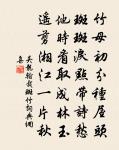 竹母初分種屋頭
斑斑淚點帶詩愁
他時看取成林玉
遙剪湘江一片秋
斑竹